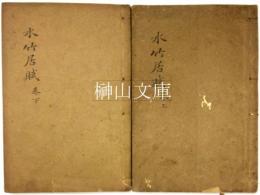 水竹居賦 卷上
水竹居賦 卷下
榊山文庫